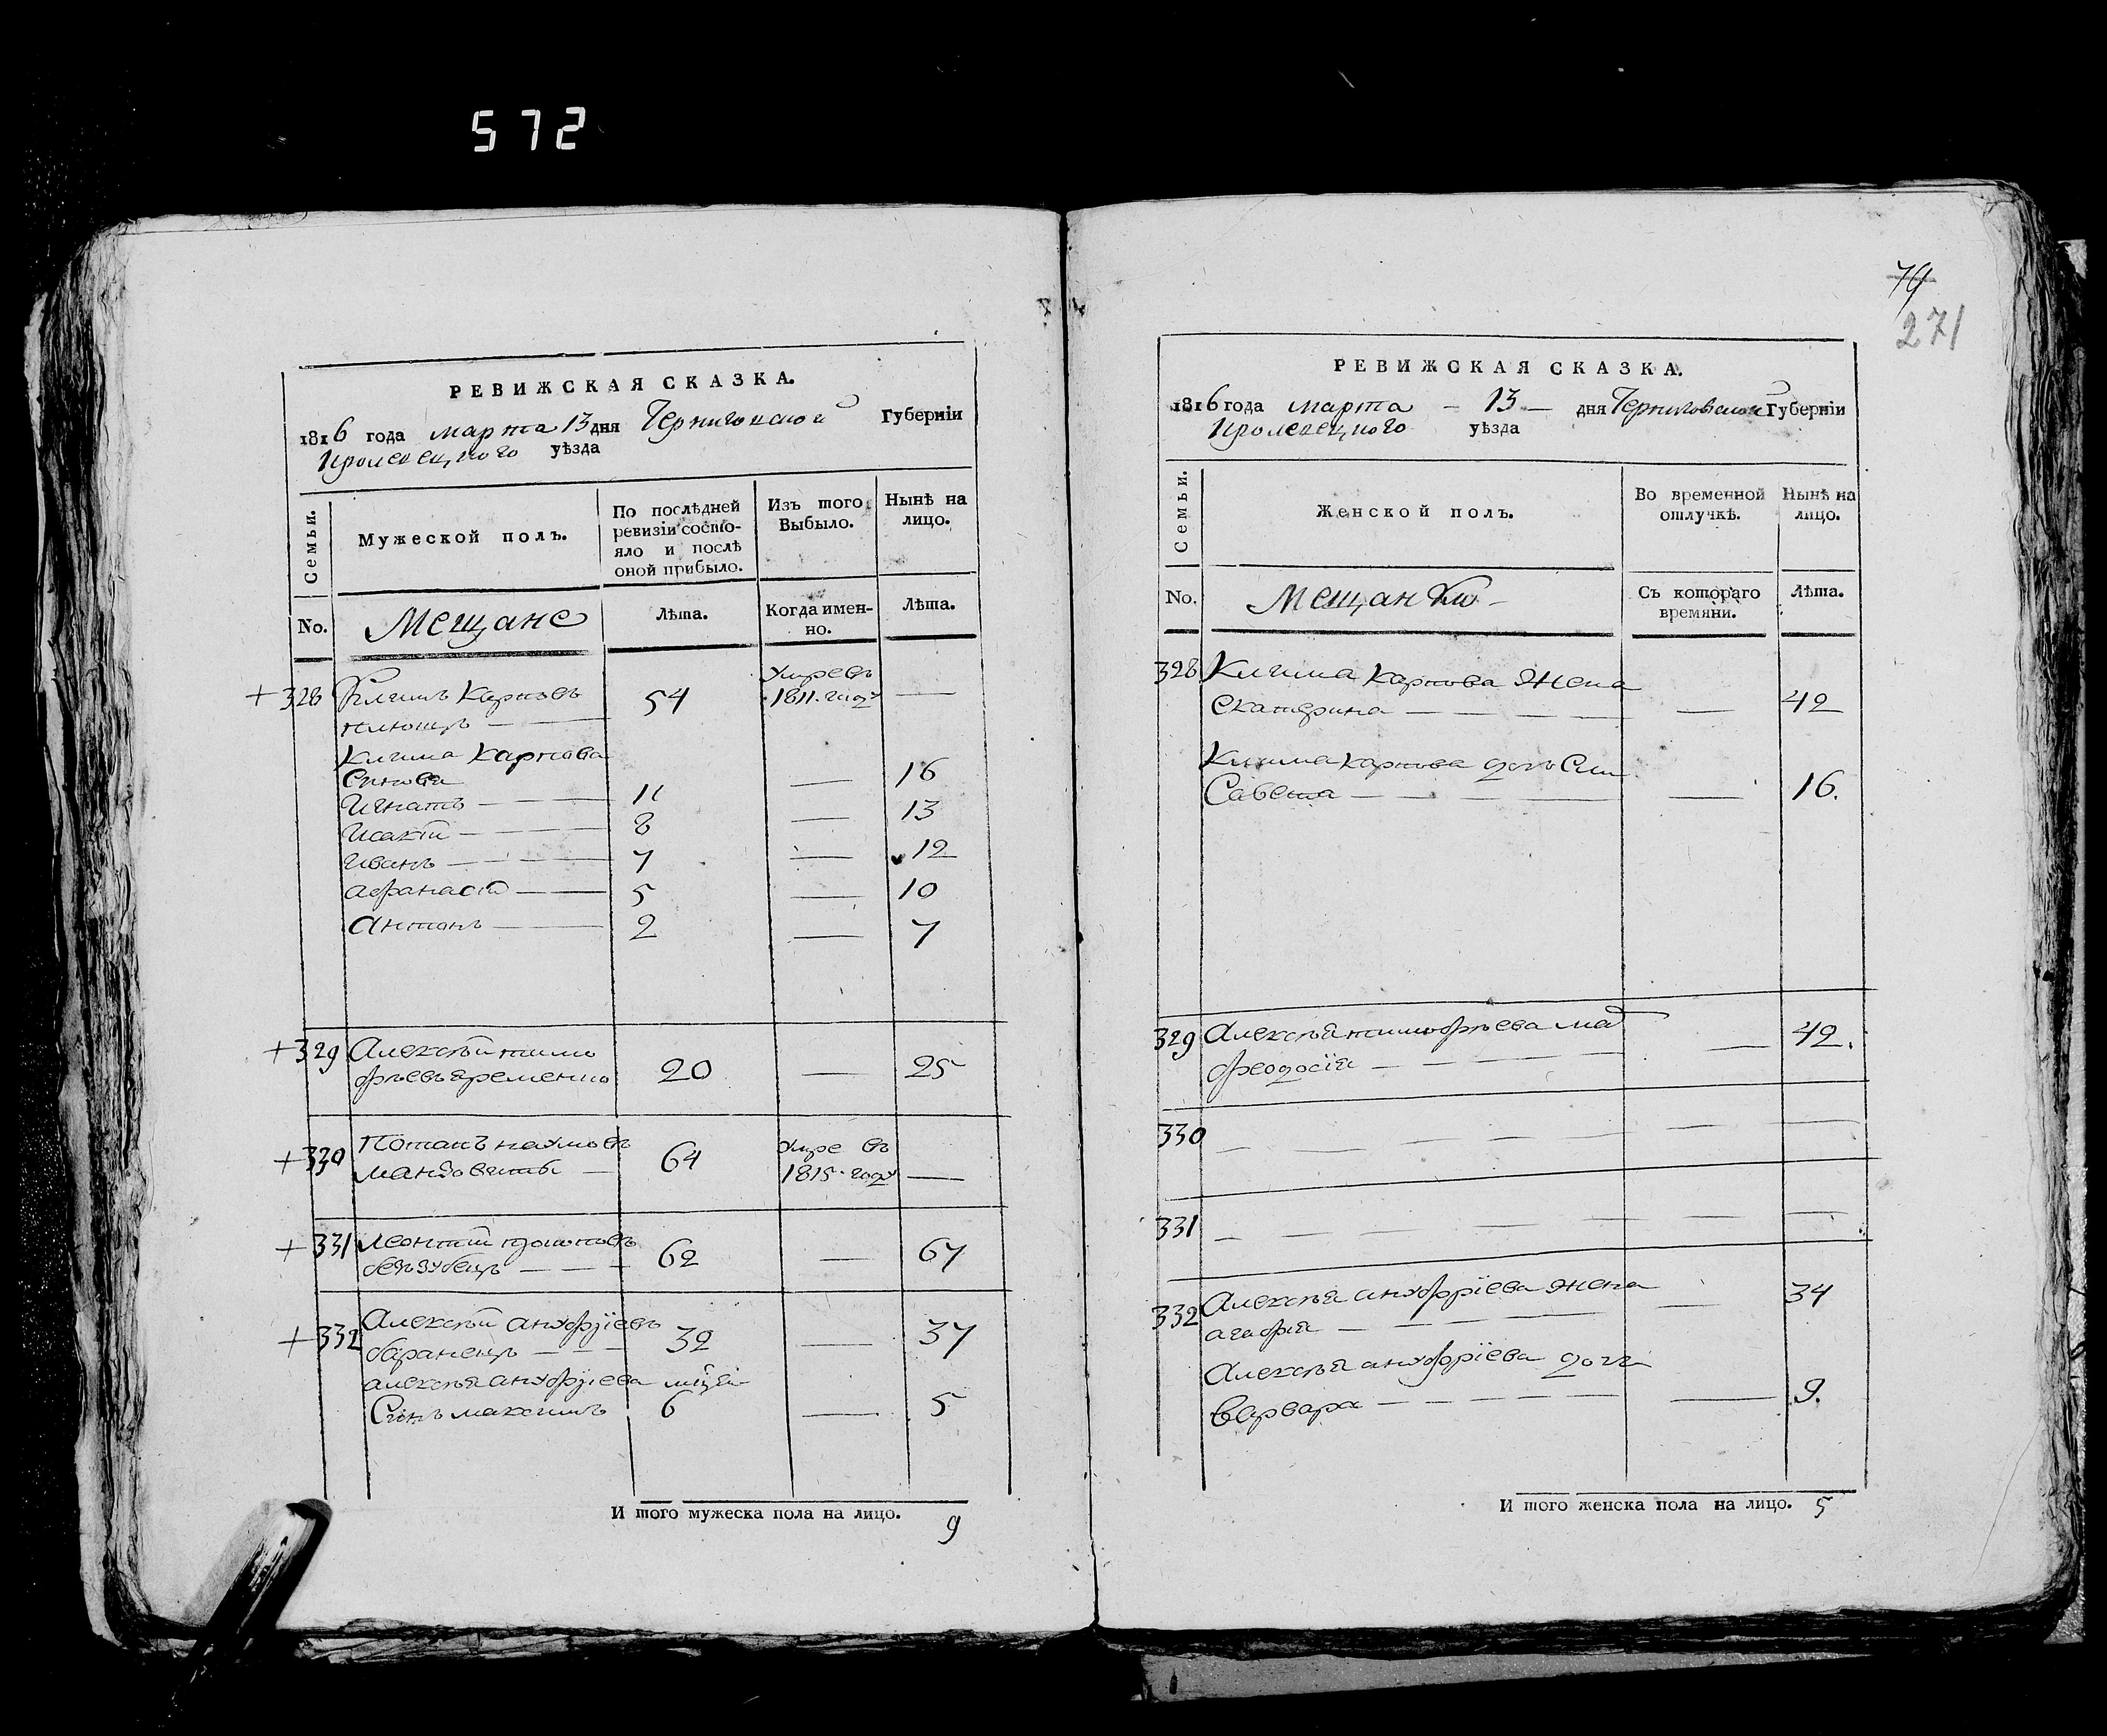 572
РЕВИЖСКАЯ СКАЗКА.
1816 года марта 13 дня Черниговской Губерніи
Кролевецкого уѣзда
Семьи.
Мужеской полъ.
По послѣдней ревизіи состо-
яло и послѣ
оной прибыло.
Изъ того
Выбыло.
Нынѣ на
лицо.
No.
Мещане
Лѣта.
Когда имен-
но.
Лѣта.
+ 328 Климъ Карповъ 54 умре въ 1811. году —
Клима Карпова
Синовя
Игнатъ — 11 — 16
Исакій — 8 — 13
Иванъ — 7 — 12
Афанасій — 5 — 10
Антонъ — 2 — 7
+ 329 Алексѣй тимо
фѣевъ Яременко 20 — 25
+ 330 Потапъ наумовъ 64 умре въ
1815. году —
+ 331 Леонтій 62 — 67
беззубецъ
+ 332 Алексѣй ануфріевъ
баранецъ — 32 — 37
алексѣя ануфріева
Синъ максимъ 6 — 5
И того мужеска пола на лицо. 9
79
271
РЕВИЖСКАЯ СКАЗКА.
1816 года марта — 13 — дня Черниговской Губерніи
Кролевецкого уѣзда
Семьи.
Женской полъ.
Во временной
отлучкѣ.
Нынѣ на
лицо.
No.
Мещанки
Съ котораго
времяни.
Лѣта.
328 Клима Карпова Жена
екатерина — — 42
Клима карпова дочь
— — 16.
329 Алексѣя тимофѣева
феодосія — — 42.
330 — — —
331 — — —
332 Алексѣя ануфріева жена
агафія — — 34
Алексѣя ануфріева дочь
варвара — — 9.
И того женска пола на лицо. 5